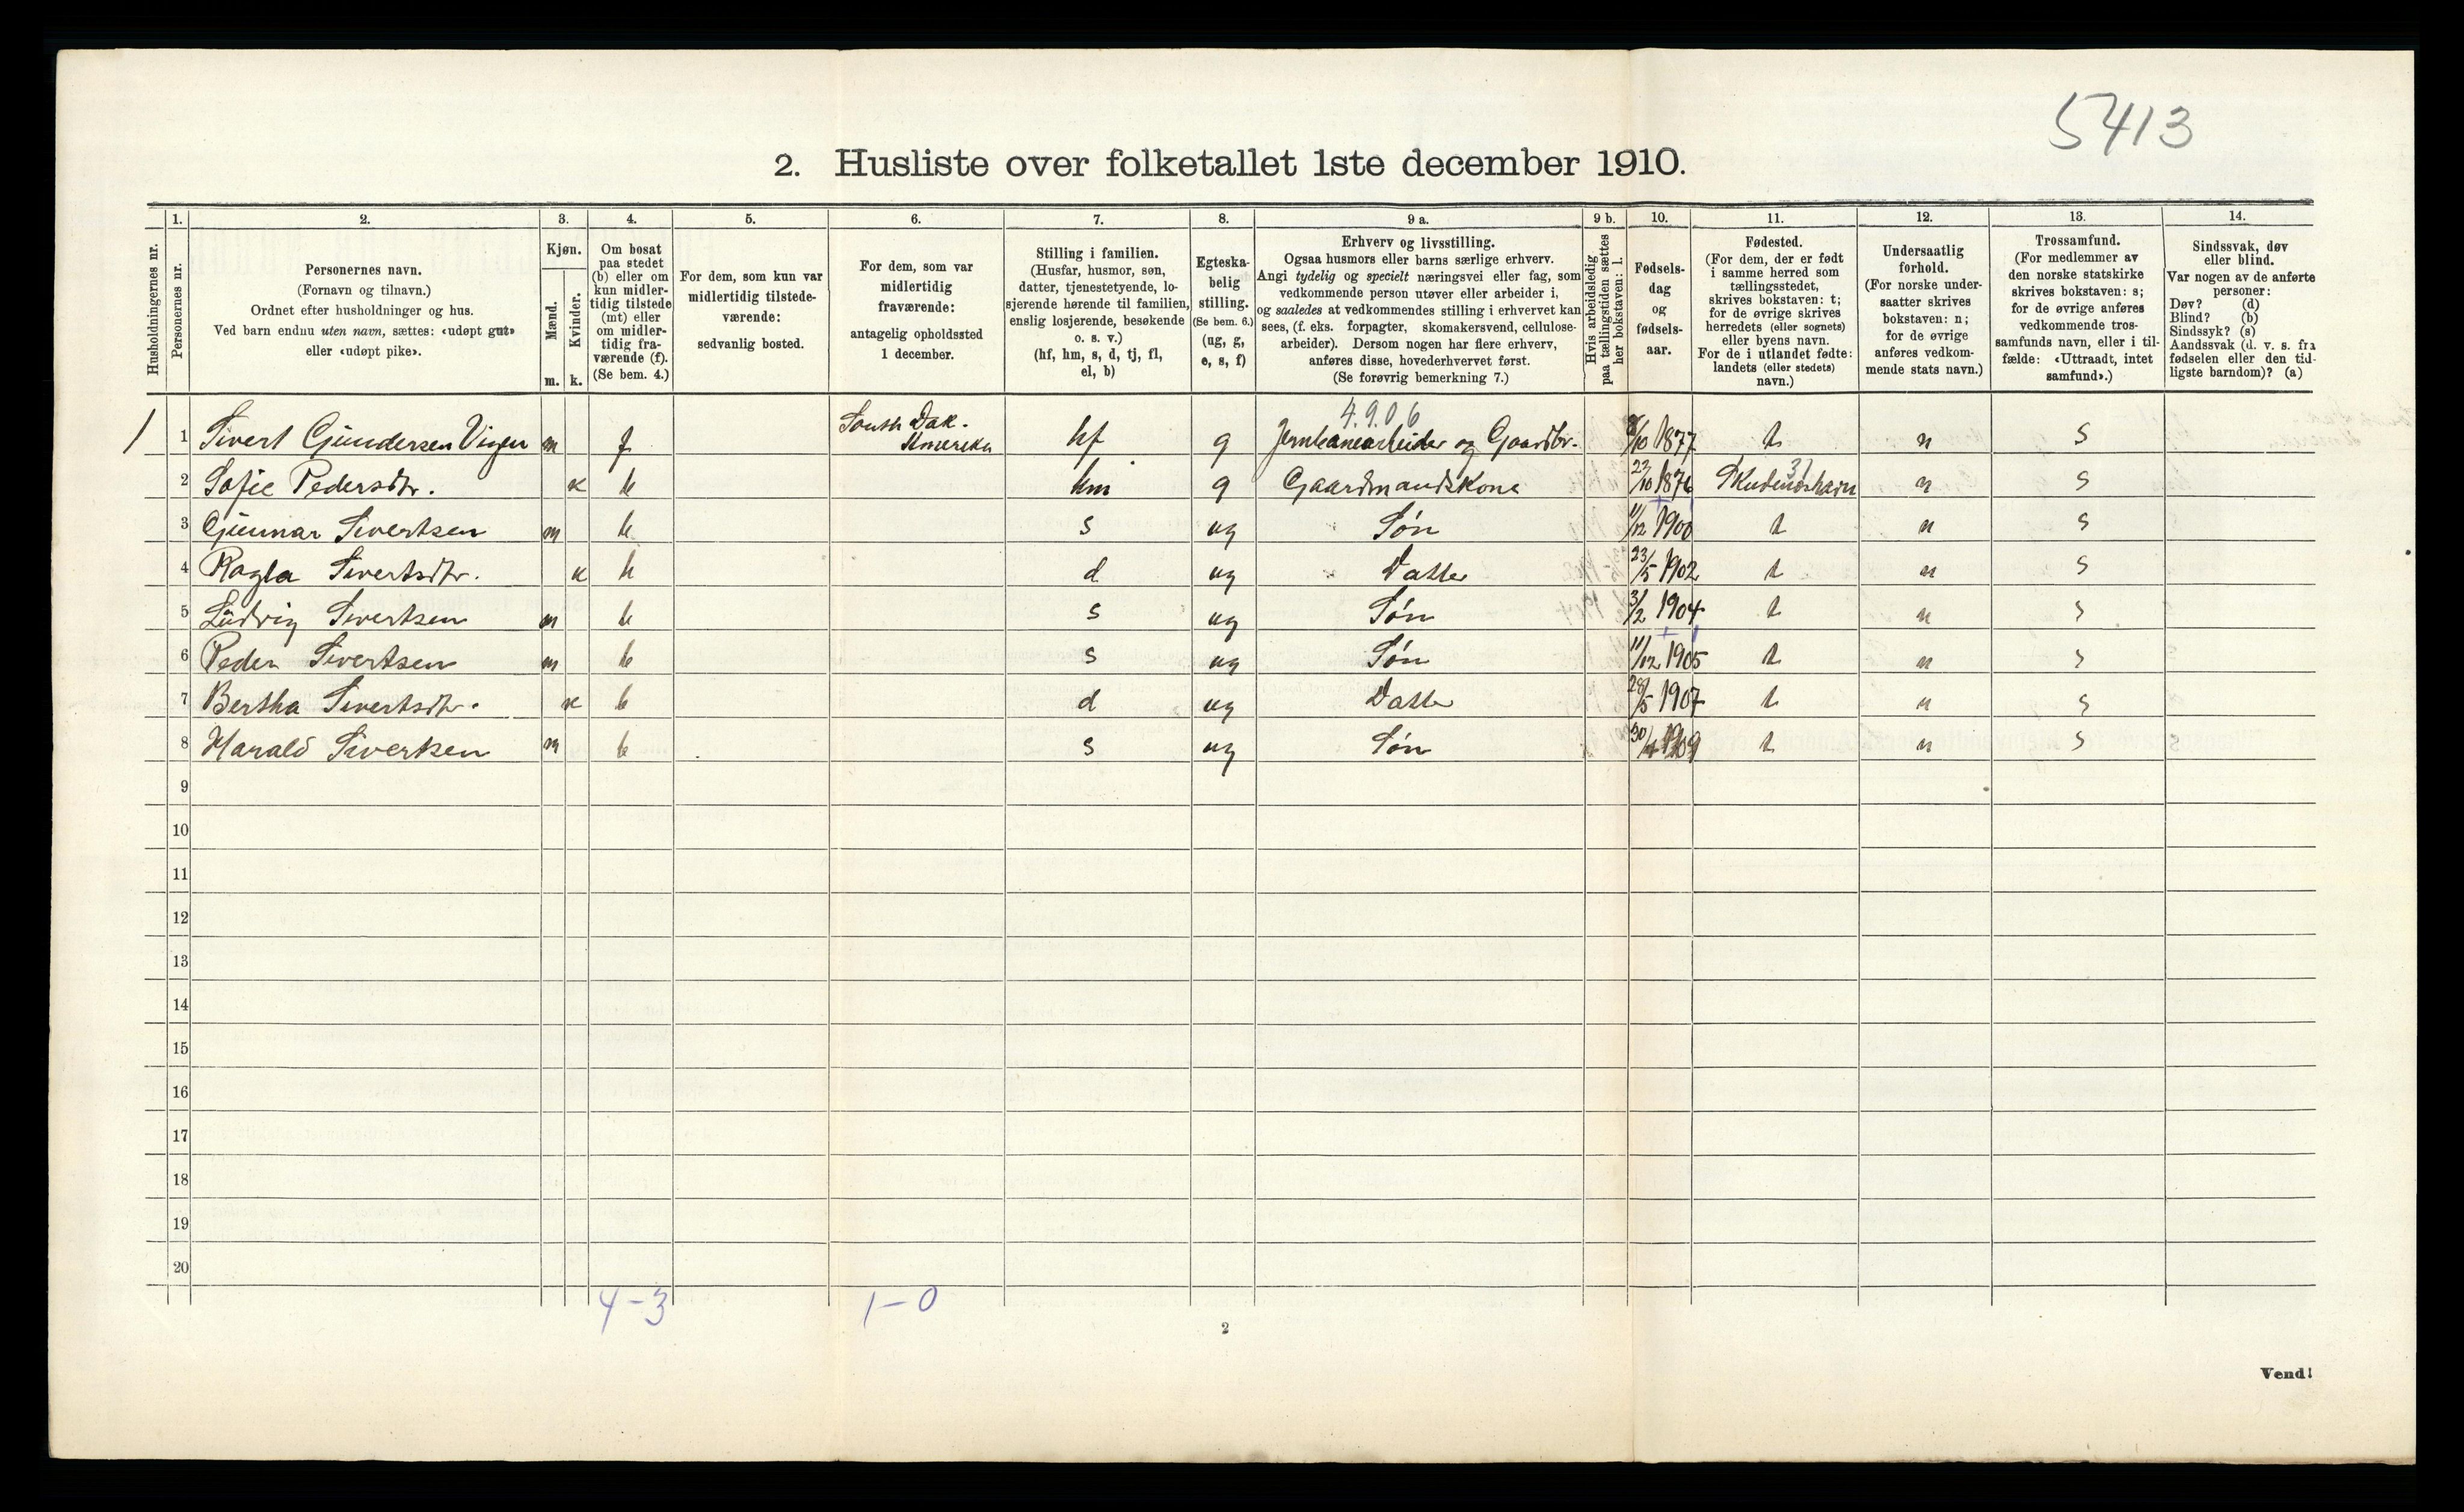 5413
2. Husliste over folketallet 1ste december 1910.
Husholdningernes nr.
1. Personernes nr.
2. Personernes navn. (Fornavn og tilnavn.) Ordnet efter husholdninger og hus. Ved barn endnu uten navn, sættes: «udøpt gut» eller «udøpt pike».
3. Kjøn. Mænd. m. Kvinder. k.
4. Om bosat paa stedet (b) eller om kun midlertidig tilstede (mt) eller om midlertidig fraværende (f). (Se bem. 4.)
5. For dem, som kun var midlertidig tilstedeværende: sedvanlig bosted.
6. For dem, som var midlertidig fraværende: antagelig opholdssted 1 december.
7. Stilling i familien. (Husfar, husmor, søn, datter, tjenestetyende, losjerende hørende til familien, enslig losjerende, besøkende o. s. v.) (hf, hm, s, d, tj, fl, el, b)
8. Egteskabelig stilling. (Se bem. 6.) (ug, g, e, s, f)
9 a. Erhverv og livsstilling. Ogsaa husmors eller barns særlige erhverv. Angi tydelig og specielt næringsvei eller fag, som vedkommende person utøver eller arbeider i, og saaledes at vedkommendes stilling i erhvervet kan sees, (f. eks. forpagter, skomakersvend, cellulosearbeider). Dersom nogen har flere erhverv, anføres disse, hovederhvervet først. (Se forøvrig bemerkning 7.)
9 b. Hvis arbeidsledig paa tællingstiden sættes her bokstaven: l.
10. Fødselsdag og fødselsaar.
11. Fødested. (For dem, der er født i samme herred som tællingsstedet, skrives bokstaven: t; for de øvrige skrives herredets (eller sognets) eller byens navn. For de i utlandet fødte: landets (eller stedets) navn.)
12. Undersaatlig forhold. (For norske undersaatter skrives bokstaven: n; for de øvrige anføres vedkommende stats navn.)
13. Trossamfund. (For medlemmer av den norske statskirke skrives bokstaven: s; for de øvrige anføres vedkommende trossamfunds navn, eller i tilfælde: «Uttraadt, intet samfund».)
14. Sindssvak, døv eller blind. Var nogen av de anførte personer: Døv? (d) Blind? (b) Sindssyk? (s) Aandssvak (d. v. s. fra fødselen eller den tidligste barndom)? (a)
4.9.06
1 1 Sivert Gundersen m f South Dak. Amerika hf g Jernbanearbeider og Gaardbr. 8/10 1877 t n s
2 Sofie Pedersdtr. k b hm g Gaardmandskone 23/10 1876 Skudeneshavn n s
3 Gunnar Sivertsen m b s ug Søn 11/12 1900 t n s
4 Ragla Sivertsdtr. k b d ug Datter 23/5 1902 t n s
5 Ludvig Sivertsen m b s ug Søn 3/2 1904 t n s
6 Peder Sivertsen m b s ug Søn 11/12 1905 t n s
7 Bertha Sivertsdtr. k b d ug Datter 28/5 1907 t n s
8 Harald Sivertsen m b s ug Søn 30/4 1909 t n s
9
10
11
12
13
14
15
16
17
18
19
20
4-3 1-0
2
Vend!